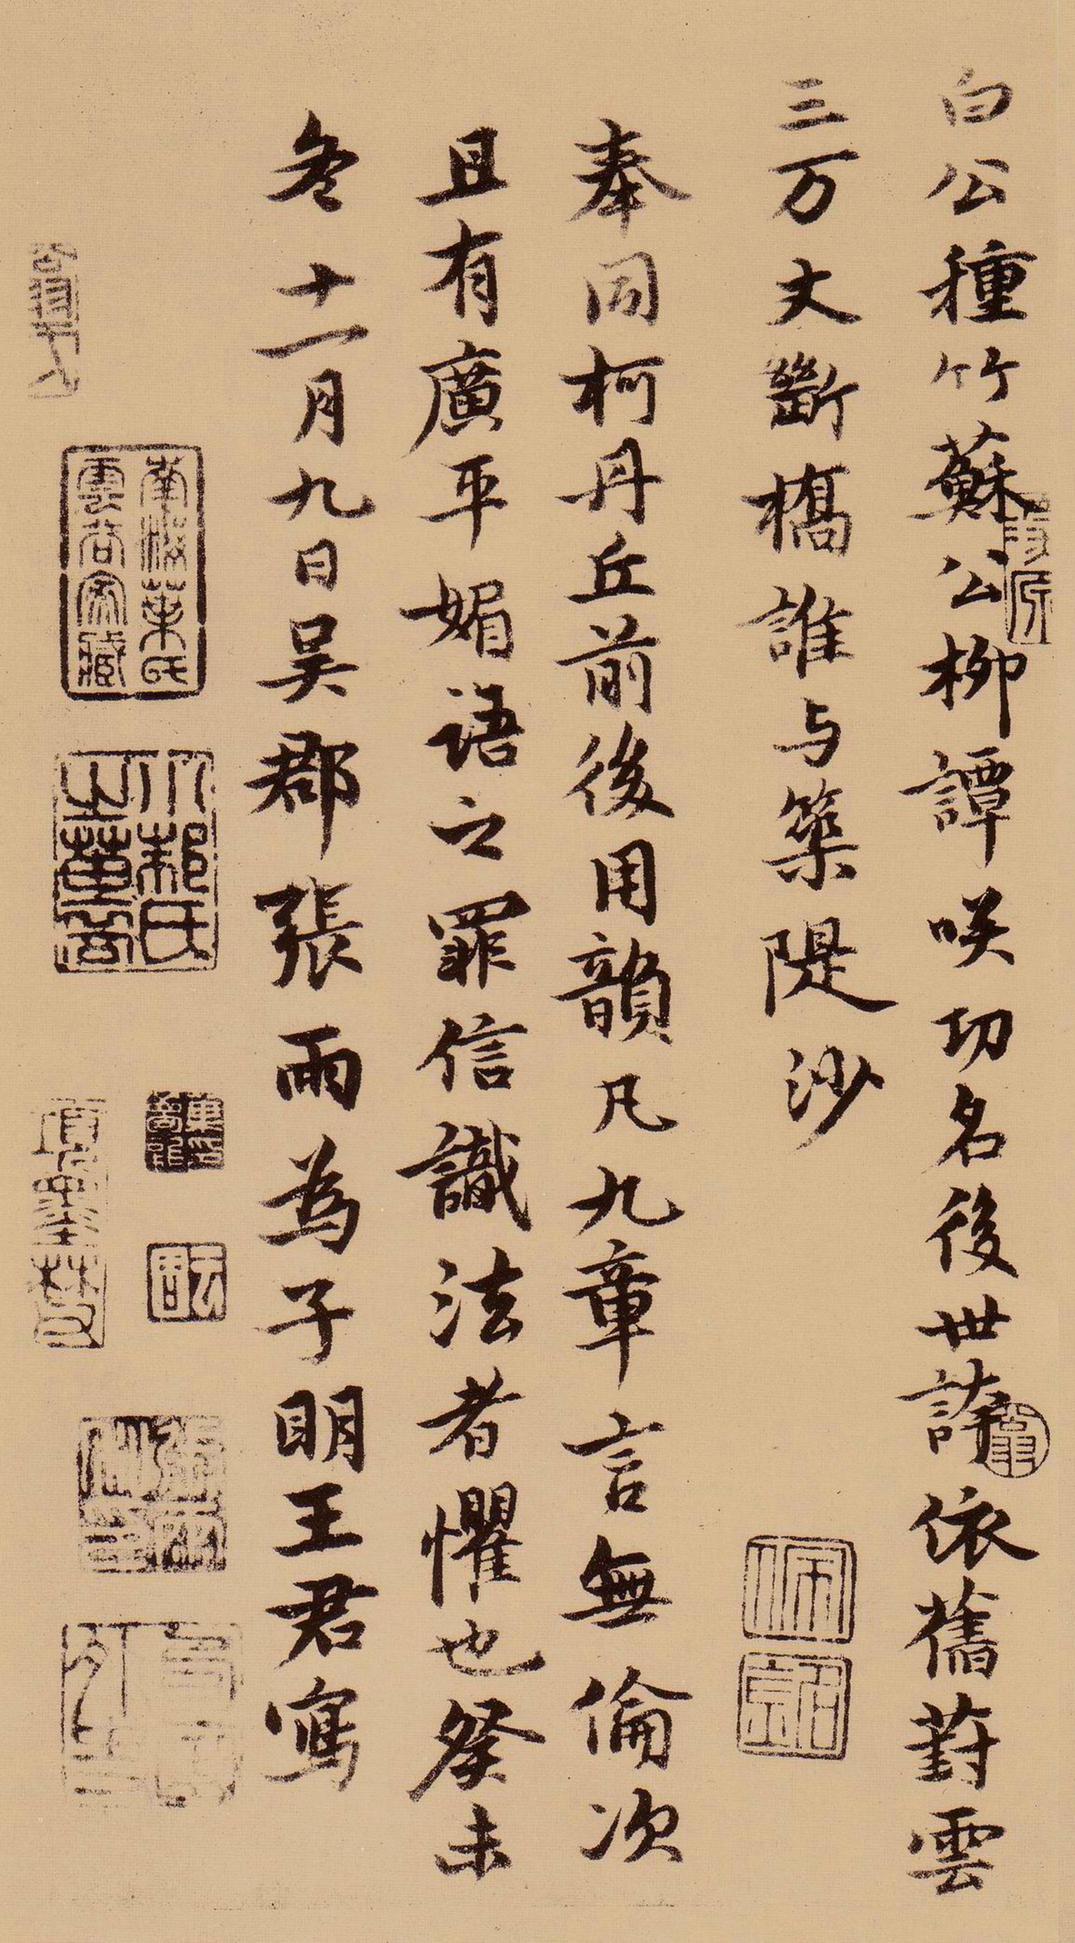 白公種竹蘇公柳譚咲功名後世誇依舊葑雲
三万丈斷橋誰与築隄沙
奉同柯丹丘前後用韻凡九章言無倫次
且有廣平媚語之罪信識法者懼也癸未
冬十一月九日吴郡張雨為子明王君寫
南海葉氏
雲谷家臧
項墨林父